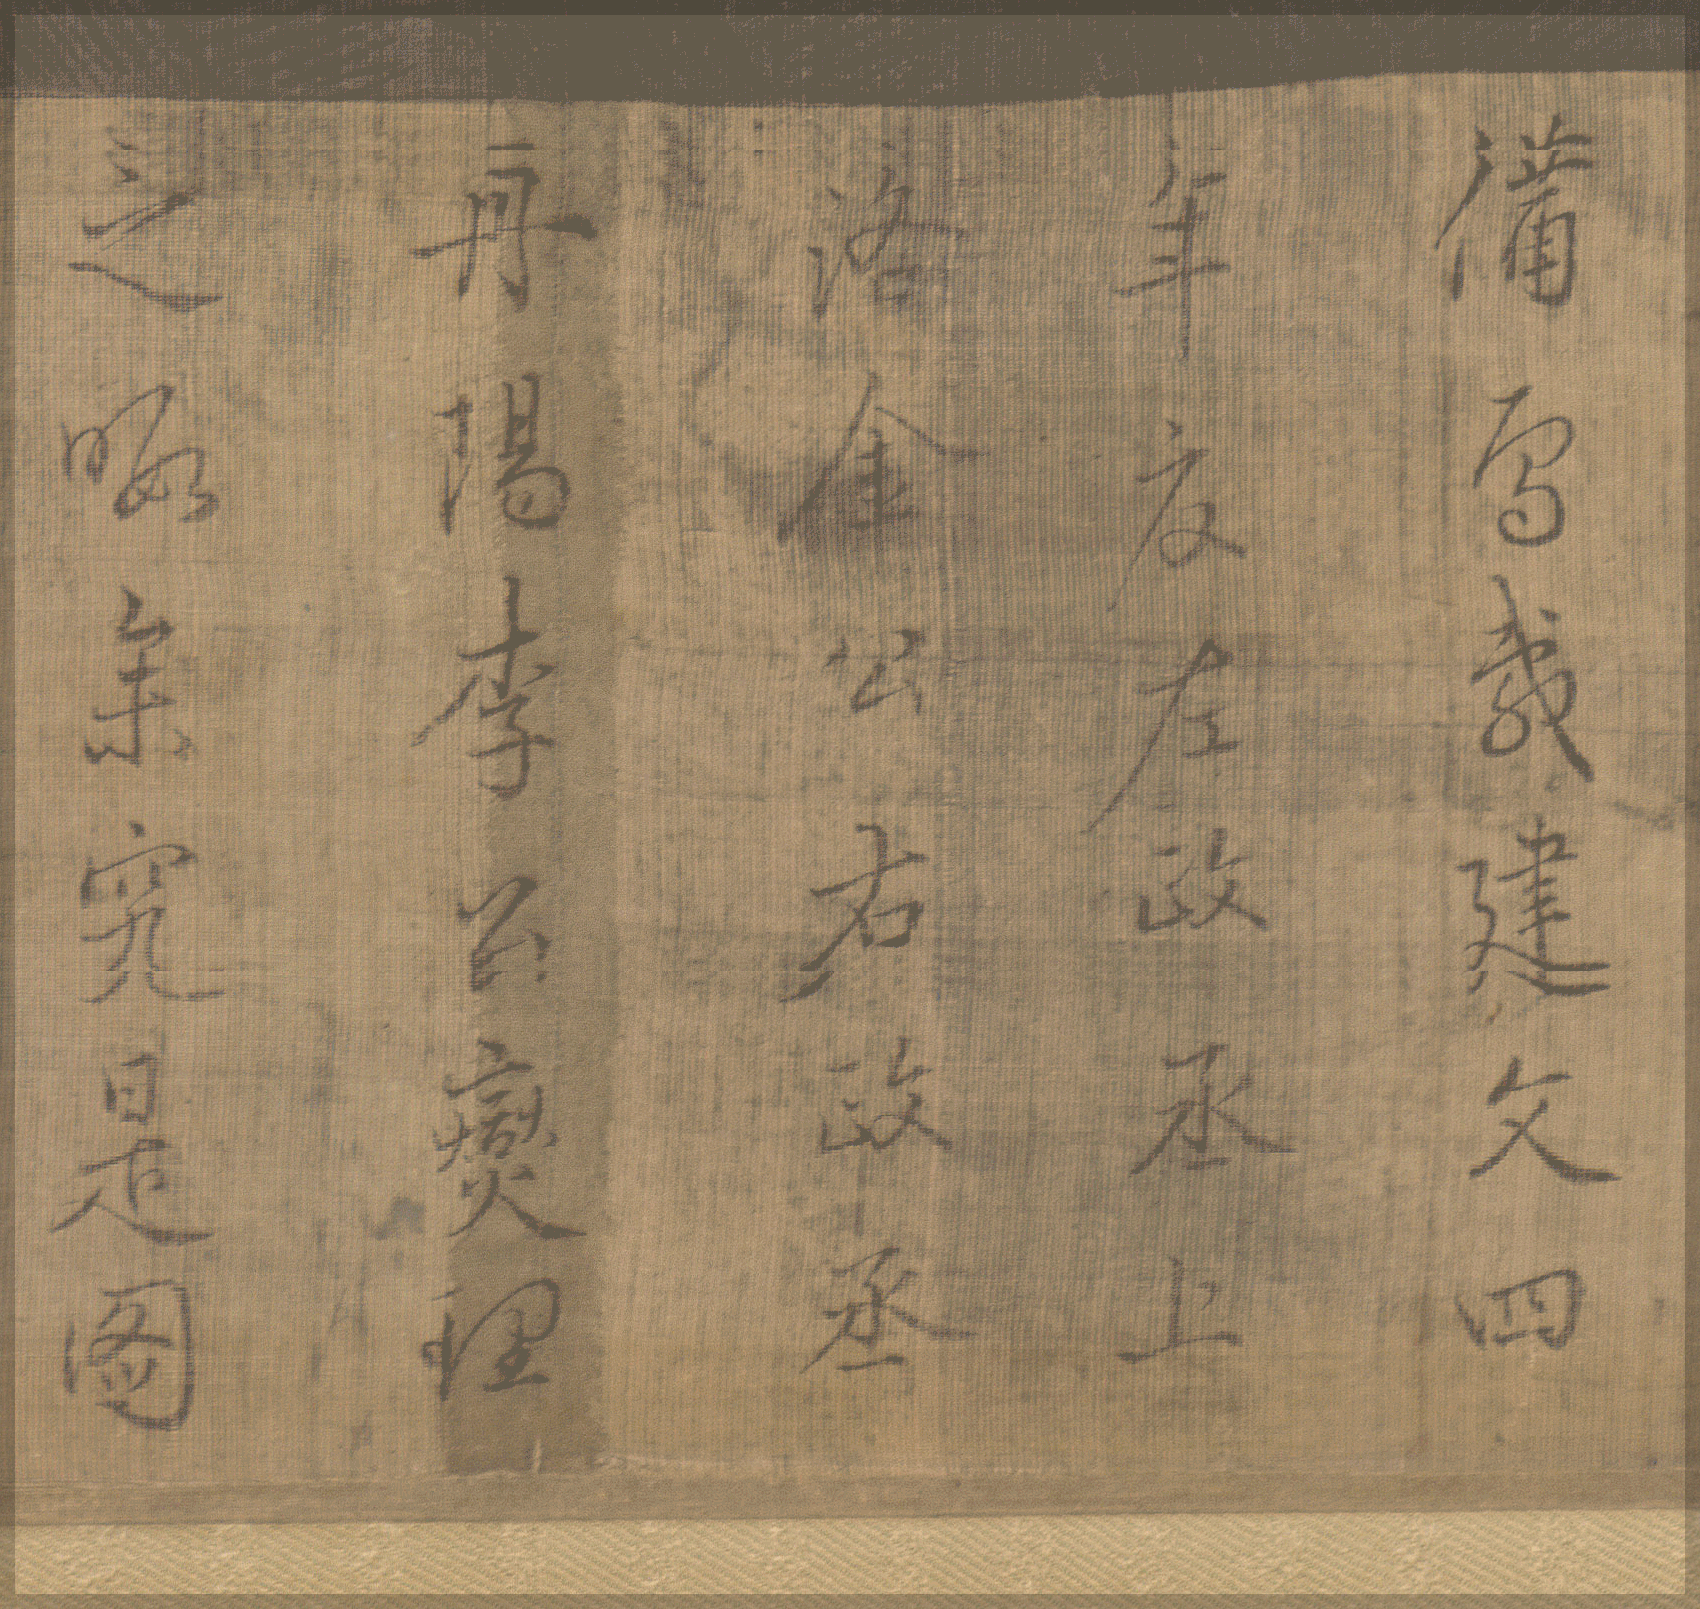 備寫哉建文四
年夏左政丞上
洛金公右政丞
丹陽李公燮理
之暇叅究是圖